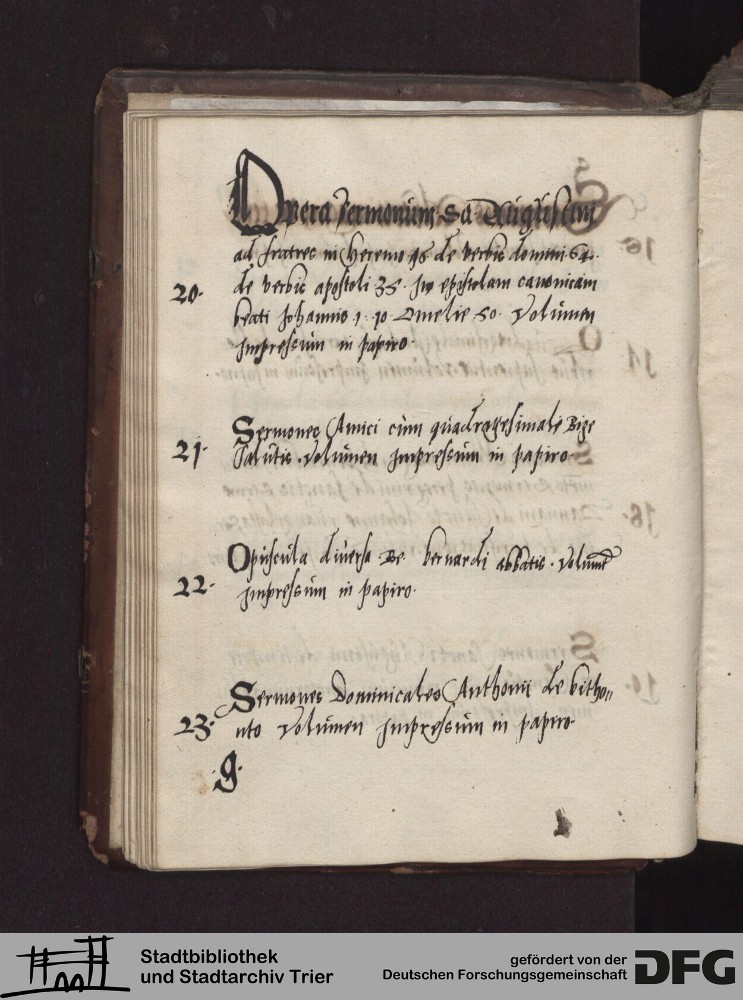 Opera sermonum Sā Augustini
ad fratres in heremo 48 de verbis domini 64.
20. de verbis apostoli 35. In epistolam canonicam
beati Johannis 1. 10. Omelie 50. Volumen
Impressum in papiro.
21. Sermones Amici cum quadragesimali Bige
Salutis. Volumen Impressum in papiro.
22. Opuscula diuersa Be bernardi abbatis. Volumē
Impressum in papiro.
23. Sermones Dominicales Anthonii de bitho„
nto Volumen Impressum in papiro.
g.
Stadtbibliothek
und Stadtarchiv Trier
gefördert von der
Deutschen Forschungsgemeinschaft
DFG